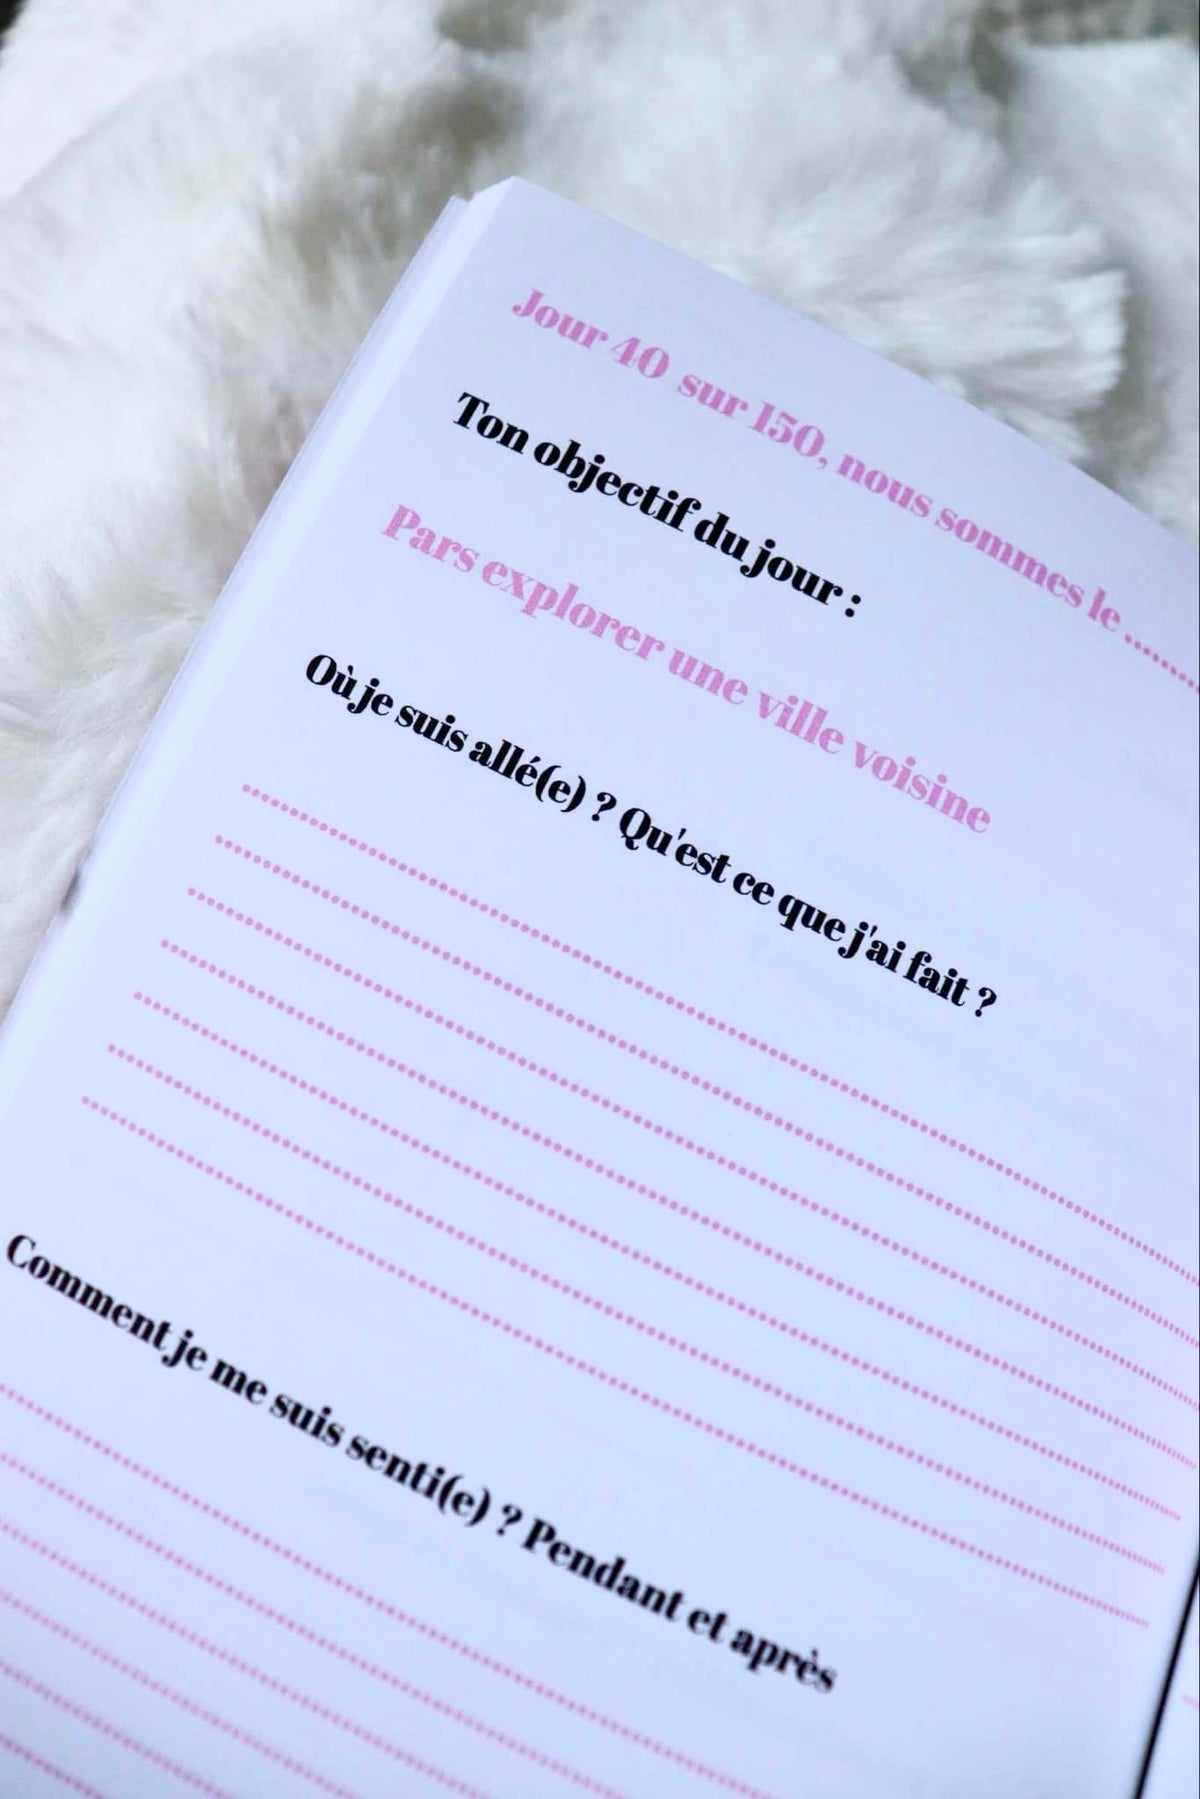 Jour 40 sur 150, nous sommes le ........
Ton objectif du jour :
Pars explorer une ville voisine
Où je suis allé(e) ? Qu'est ce que j'ai fait ?
Comment je me suis senti(e) ? Pendant et après